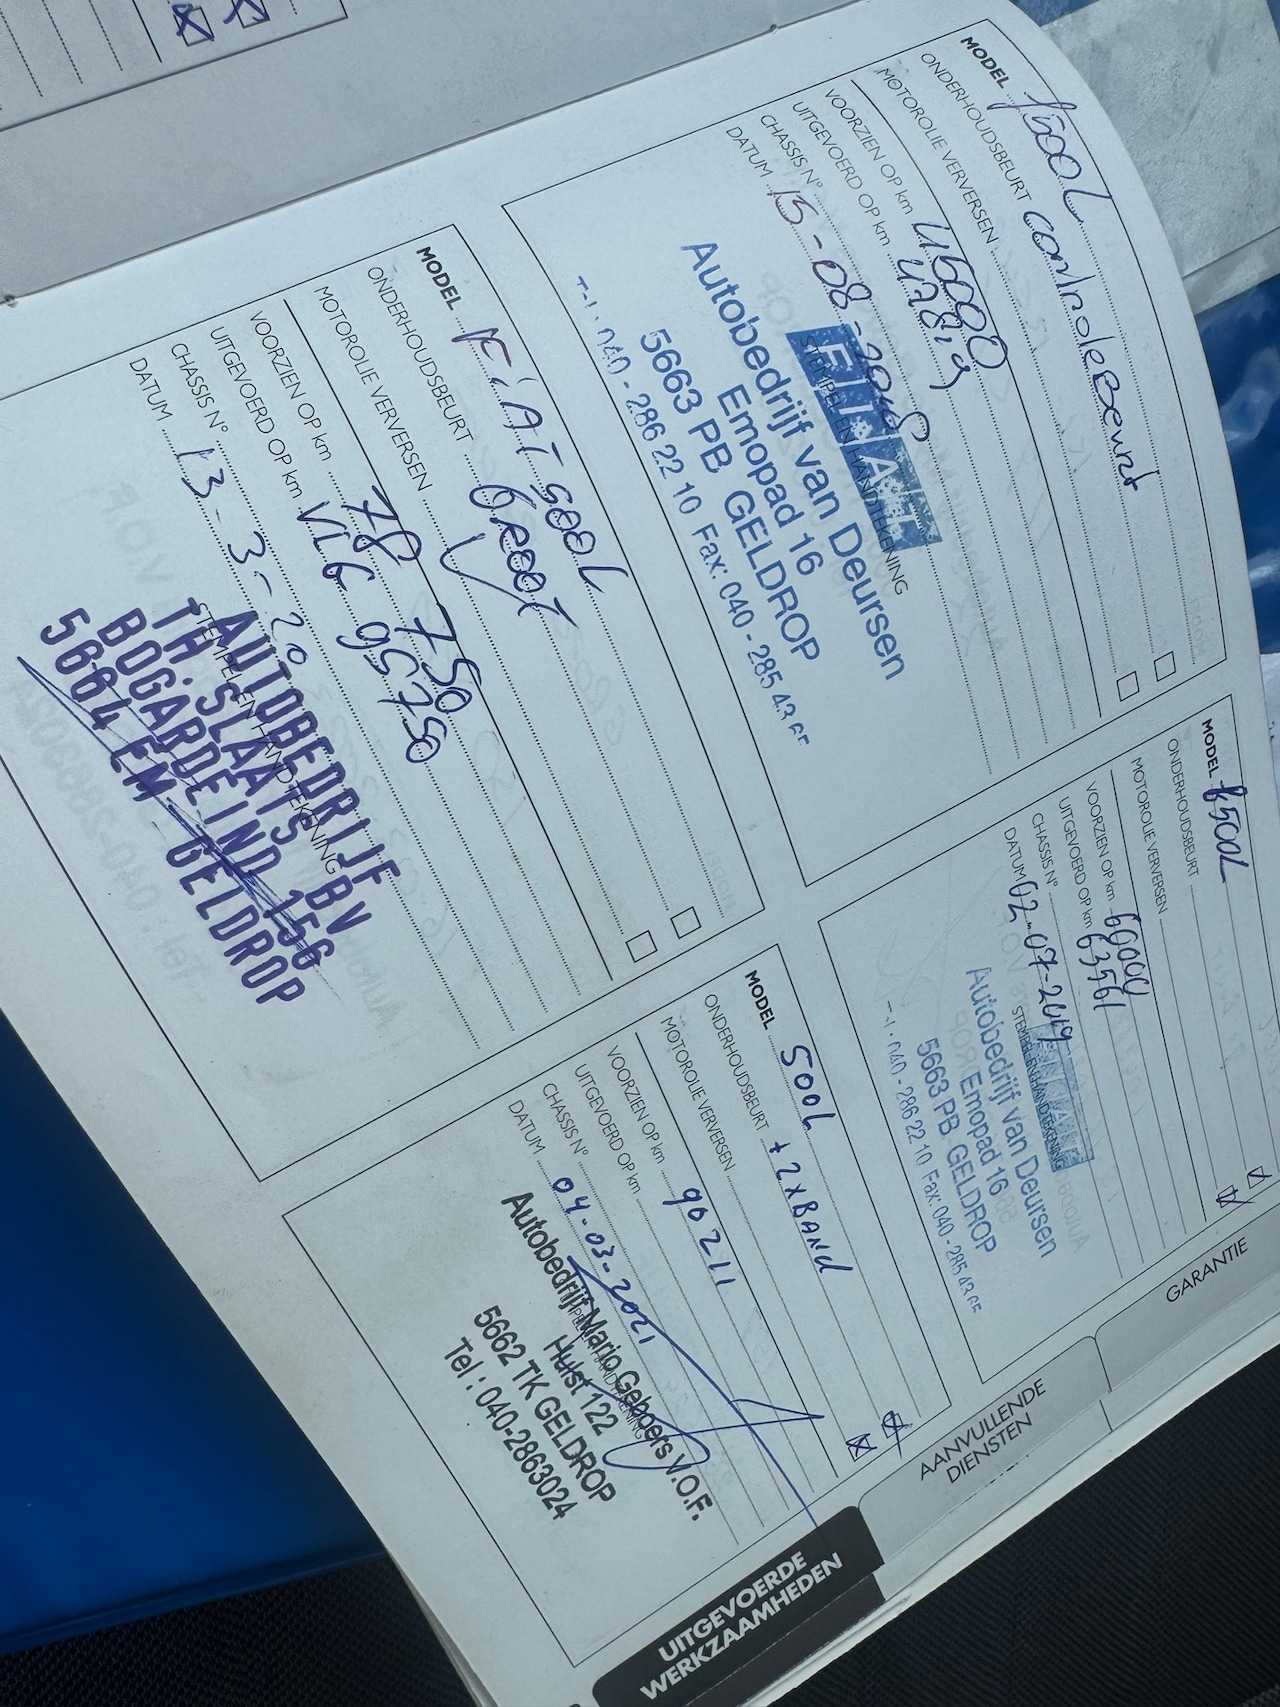 MODEL f500L
ONDERHOUDSBEURT controlebeurt
MOTOROLIE VERVERSEN
VOORZIEN OP km 45000
UITGEVOERD OP km 47819
CHASSIS N°
DATUM 15-08-2018
STEMPEL EN HANDTEKENING
FIAT
Autobedrijf van Deursen
Emopad 16
5663 PB GELDROP
040 - 286 22 10 Fax: 040 - 285 43
MODEL f500L
ONDERHOUDSBEURT
MOTOROLIE VERVERSEN
VOORZIEN OP km 60000
UITGEVOERD OP km 63561
CHASSIS N°
DATUM 02-07-2019
STEMPEL EN HANDTEKENING
Autobedrijf van Deursen
Emopad 16
5663 PB GELDROP
040 - 286 22 10 Fax: 040 - 285 43
MODEL FiAT 500L
ONDERHOUDSBEURT GROOT
MOTOROLIE VERVERSEN
VOORZIEN OP km 78 750
UITGEVOERD OP km VLG 95750
CHASSIS N°
DATUM 13-3-20
STEMPEL EN HANDTEKENING
AUTOBEDRIJF
TH. SLAATS BV
BOGARDEIND 156
5664 EM GELDROP
MODEL 500L
ONDERHOUDSBEURT + 2xBAND
MOTOROLIE VERVERSEN
VOORZIEN OP km 90211
UITGEVOERD OP km
CHASSIS N°
DATUM 04-03-2021
Autobedrijf Mario Geboers V.O.F.
Hulst 122
5662 TK GELDROP
Tel : 040-2863024
GARANTIE
AANVULLENDE
DIENSTEN
UITGEVOERDE
WERKZAAMHEDEN